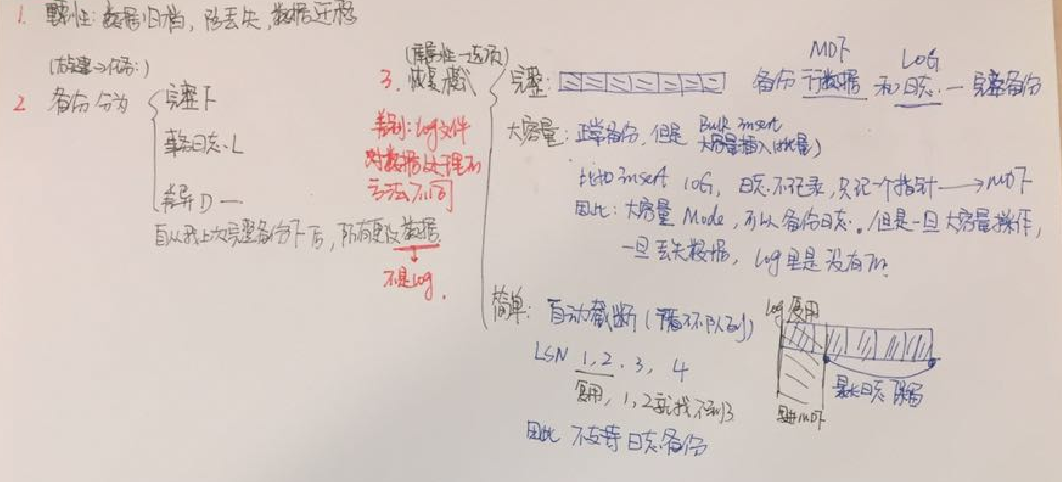 1. 重要性: 数据归档, 防丢失, 数据迁移
2 备份分为
完整 F
事务日志 L
差异 D —
自从我上次完整备份F后, 所有更改数据
不是log.
(库属性—选项)
3. 恢复模式
差别: log文件
对数据处理的
方法不同
完整:
备份 行数据 和 日志 — 完整备份
MDF
LOG
大容量: 正常备份, 但是 Bulk insert
大容量插入(批量)
比如 insert LOG, 日志不记录, 只记一个指针 → MDF
因此: 大容量 Mode, 可以备份日志. 但是一旦大容量操作,
一旦丢失数据, log里是没有的.
简单: 自动截断
LSN 1, 2, 3, 4
复用, 1, 2就找不到了
因此 不支持日志备份
log 复用